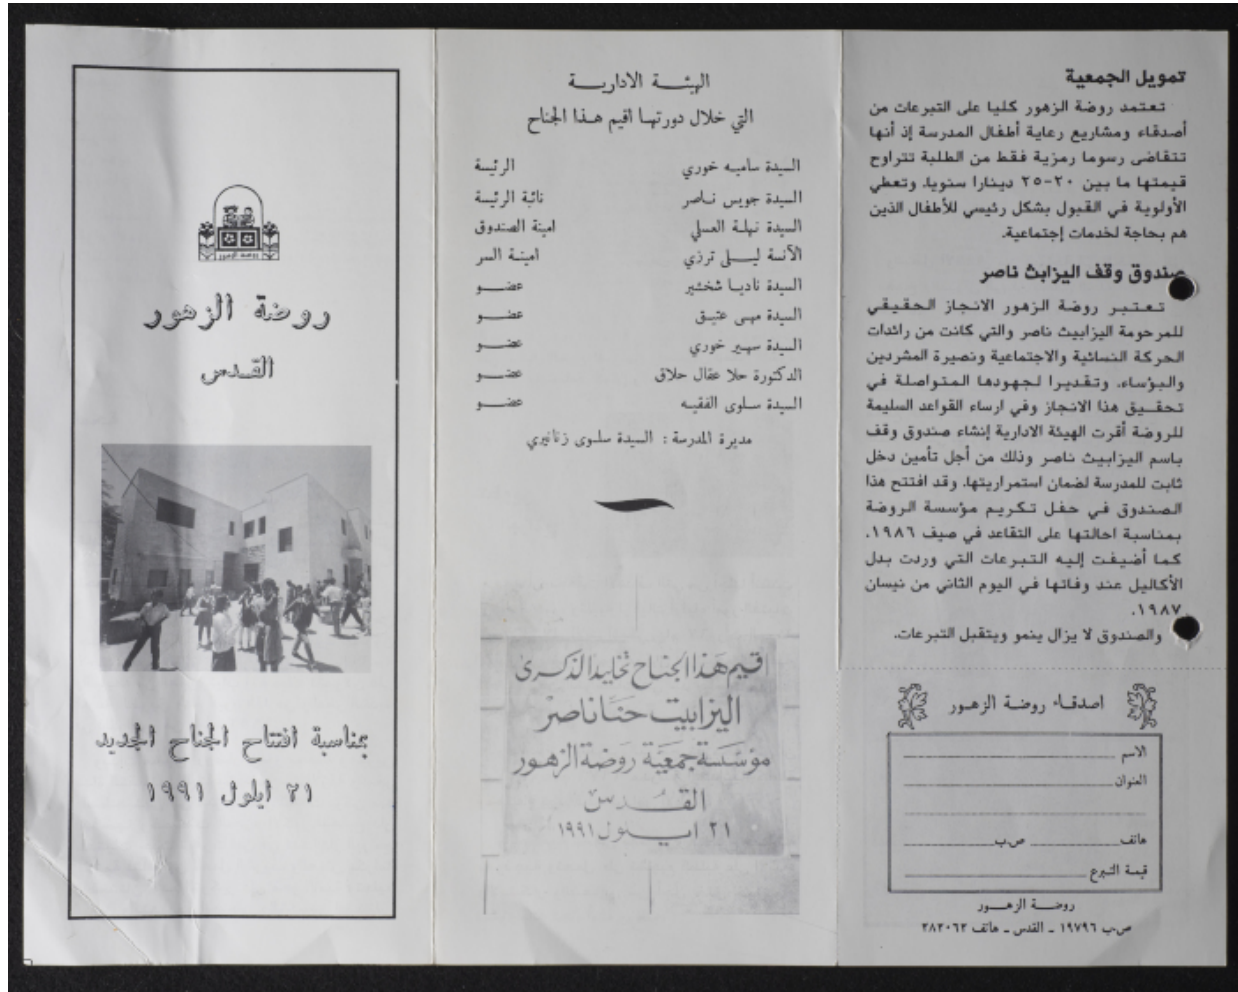 تمويل الجمعية
تعتمد روضة الزهور كليا على التبرعات من
أصدقاء ومشاريع رعاية أطفال المدرسة إذ أنها
تتقاضى رسوما رمزية فقط من الطلبة تتراوح
قيمتها ما بين ٢٠-٢٥ دينارا سنويا. وتعطي
الأولوية في القبول بشكل رئيسي للأطفال الذين
هم بحاجة لخدمات إجتماعية.
صندوق وقف اليزابث ناصر
تعتبر روضة الزهور الانجاز الحقيقي
للمرحومة اليزابيث ناصر والتي كانت من رائدات
الحركة النسائية والاجتماعية ونصيرة المشردين
والبؤساء. وتقديرا لجهودها المتواصلة في
تحقيق هذا الانجاز وفي ارساء القواعد السليمة
للروضة أقرت الهيئة الادارية إنشاء صندوق وقف
باسم اليزابيث ناصر وذلك من أجل تأمين دخل
ثابت للمدرسة لضمان استمراريتها. وقد افتتح هذا
الصندوق في حفل تكريم مؤسسة الروضة
بمناسبة احالتها على التقاعد في صيف ١٩٨٦.
كما أضيفت إليه التبرعات التي وردت بدل
الأكاليل عند وفاتها في اليوم الثاني من نيسان
١٩٨٧.
والصندوق لا يزال ينمو ويتقبل التبرعات.
اصدقاء روضة الزهور
الاسم
العنوان
هاتف ص.ب
قيمة التبرع
روضة الزهور
ص.ب ١٩٧٩٦ ـ القدس ـ هاتف ٢٨٢٠٦٢
الهيئة الادارية
التي خلال دورتها اقيم هذا الجناح
السيدة ساميه خوري الرئيسة
السيدة جويس ناصر نائبة الرئيسة
السيدة نهلة العسلي امينة الصندوق
الآنسة ليلى ترزي امينة السر
السيدة ناديا شخشير عضو
السيدة مهى عتيق عضو
السيدة سهير خوري عضو
الدكتورة حلا عقال حلاق عضو
السيدة سلوى الفقيه عضو
مديرة المدرسة : السيدة سلوى زنانيري
اقيم هذا الجناح تخليدا لذكرى
اليزابيت حنا ناصر
مؤسسة جمعية روضة الزهور
القدس
٢١ ايلول ١٩٩١
روضة الزهور
روضة الزهور
القدس
بمناسبة افتتاح الجناح الجديد
٢١ ايلول ١٩٩١